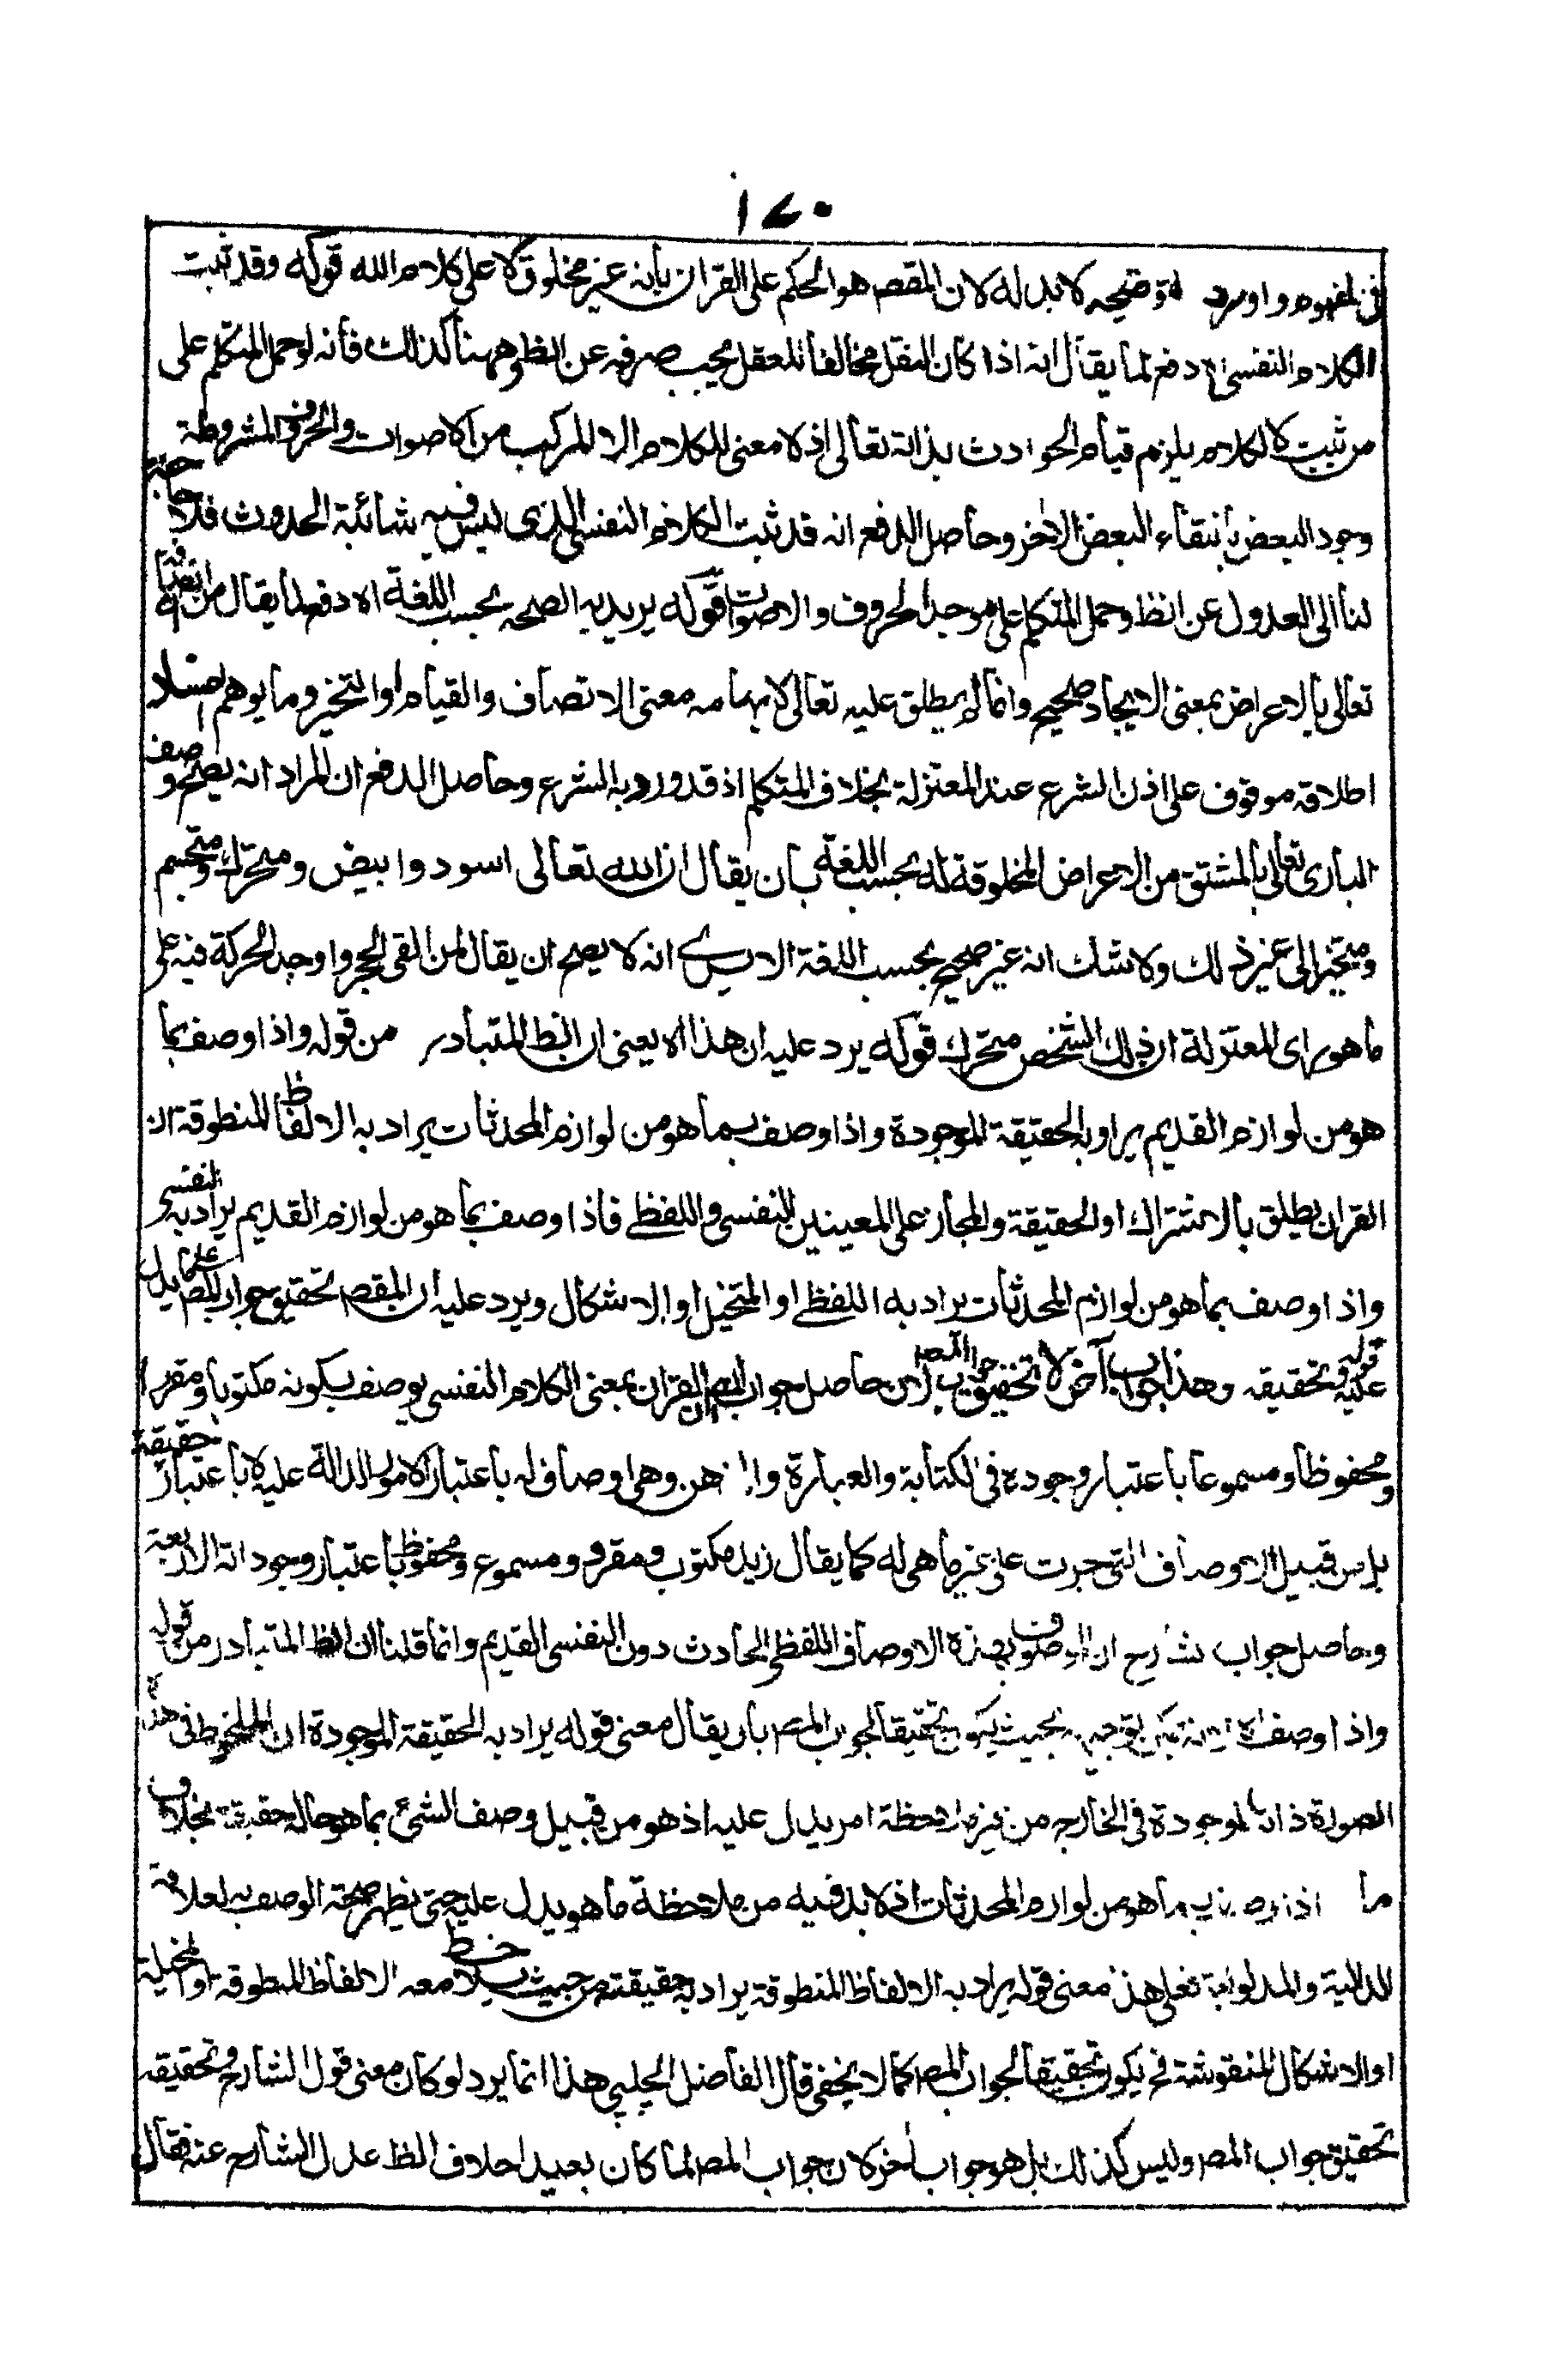 ١٧٠
في المفهوم واورد لتوضيحه لا بدل له لان المقصم هو الحكم على القران بانه غير مخلوق لا على كلام الله قوله وقد ثبت
الكلام النفسى اه دفع لما يقال انه اذا كان النقل مخالفا للعقل يجب صرفه عن الظ وههنا كذلك فانه لو حمل المتكلم على
من ثبت له الكلام يلزم قيام الحوادث بذاته تعالى اذ لا معنى للكلام الا المركب من الاصوات والحروف المشروطة
وجود البعض بانتفاء البعض الاخر وحاصل الدفع انه قد ثبت الكلام النفسى الذى ليس فيه شائبة الحدوث فلا حاجة
لنا الى العدول عن الظ وحمل المتكلم على موجد الحروف والاصوات قوله يريد به الصحه بحسب اللغة اه دفع لما يقال من ان اتصافه
تعالى بالاعراض بمعنى الايجاد صحيح وانما لم يطلق عليه تعالى لايهامه معنى الاتصاف والقيام او التحيز وما يوهم
اطلاقه موقوف على اذن الشرع عند المعتزلة بخلاف المتكلم اذ قد ورد به الشرع وحاصل الدفع ان المراد انه يصح وصف
البارى تعالى بالمشتق من الاعراض المخلوقة له بحسب اللغة بان يقال ان الله تعالى اسود وابيض ومتحرك ومتجسم
ومتحيز الى غير ذلك ولا شك انه غير صحيح بحسب اللغة الا يرى انه لا يصح ان يقال لمن القى الحجر واوجد الحركة فيه على
ما هو راى المعتزلة ان ذلك الشخص متحرك قوله يرد عليه ان هذا اه يعنى ان الظ المتبادر من قوله واذا وصف بما
هو من لوازم القديم يراد به الحقيقة الموجودة واذا وصف بما هو من لوازم المحدثات يراد به الالفاظ المنطوقة ان
القران يطلق بالاشتراك او الحقيقة والمجاز على المعنيين النفسى واللفظى فاذا وصف بما هو من لوازم القديم يراد به النفسى
واذا وصف بما هو من لوازم المحدثات يراد به اللفظى او المتخيل او الاشكال ويرد عليه ان المقصم تحقيق جواب المصر على ما يدل
عليه قوله وتحقيقه وهذا جواب آخر لا تحقيق جواب المصر لان حاصل جواب المصر ان القران بمعنى الكلام النفسى يوصف بكونه مكتوبا ومقروا
ومحفوظا ومسموعا باعتبار وجوده في الكتابة والعبارة والذهن وهى اوصاف له باعتبار الامور الدالة عليه لا باعتبار حقيقة
بل من قبيل الاوصاف التى جرت على غير ما هى له كما يقال زيد مكتوب ومقرو ومسموع ومحفوظ باعتبار وجوداته الاربعة
وحاصل جواب الشارح ان الموصوف بهذه الاوصاف اللفظى الحادث دون النفسى القديم وانما قلنا ان الظ المتبادر من قوله
واذا وصف اه لانه يمكن توجيهه بحيث يكون تحقيقا لجواب المصر بان يقال معنى قوله يراد به الحقيقة الموجودة ان الملحوظ في هذه
الصورة ذاته الموجودة في الخارج من غير ملاحظة امر يدل عليه اذ هو من قبيل وصف الشئ بما هو حاله حقيقة بخلاف
ما اذا وصف بما هو من لوازم المحدثات اذ لا بد فيه من ملاحظة ما هو يدل عليه حتى يظهر صحة الوصف به لعلاقة
الدالية والمدلولية فعلى هذا معنى قوله يراد به الالفاظ المنطوقة يراد به حقيقته من حيث يلاحظ معه الالفاظ المنطوقة او المخيلة
او الاشكال المنقوشة فح يكون تحقيقا لجواب المصر كما لا يخفى قال الفاضل الچلپى هذا انما يرد لو كان معنى قول الشارح وتحقيقه
تحقيق جواب المصر وليس كذلك بل هو جواب اخر لان جواب المصر لما كان بعيدا خلاف الظ عدل الشارح عنه فقال